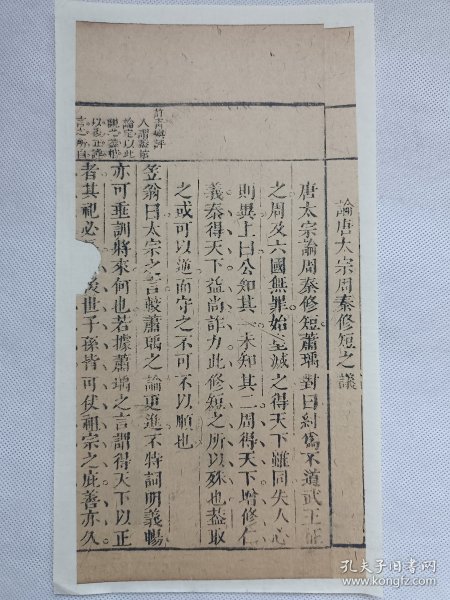 論唐太宗周秦修短之議
唐太宗論周秦修短蕭瑀對曰紂為不道武王征
之周及六國無罪始皇滅之得天下雖同失人心
則異上曰公知其一未知其二周得天下增修仁
義秦得天下益尚詐力此修短之所以殊也蓋取
之或可以逆而守之不可不以順也
笠翁曰太宗之言較蕭瑀之論更進不特詞明義暢
亦可垂訓將來何也若據蕭瑀之言謂得天下以正
者其祀必 後世子孫皆可仗祖宗之庇善亦久
孔夫子旧书网
www.kongfz.com